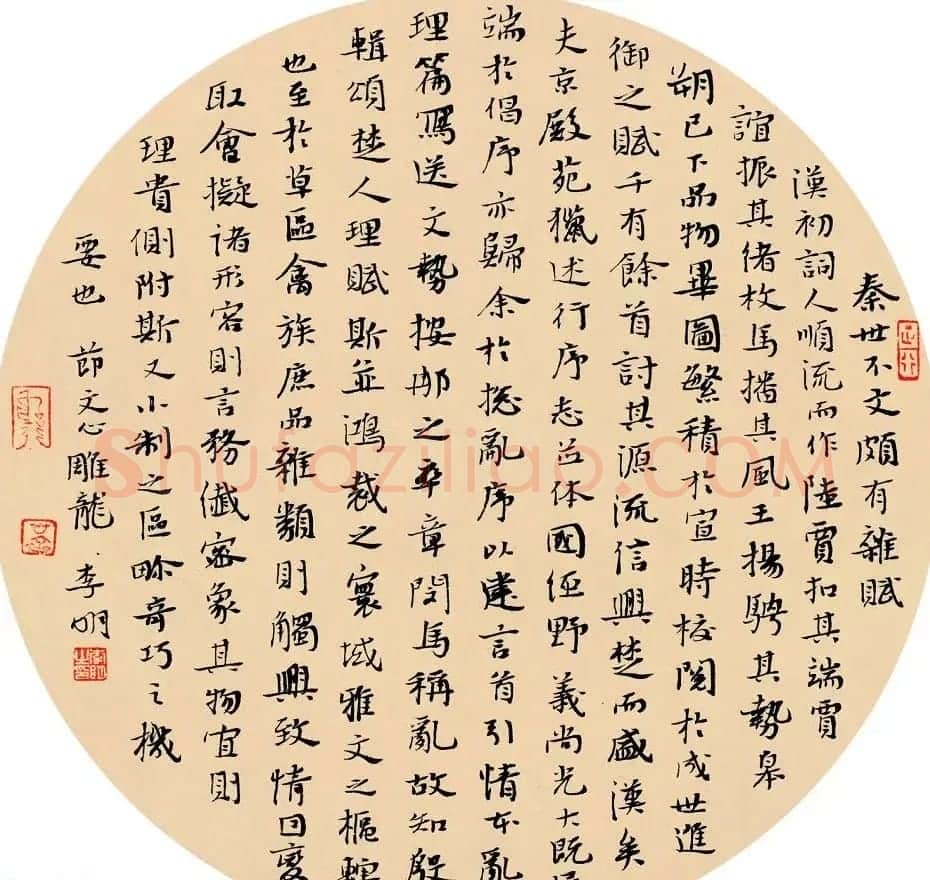 秦世不文頗有雜賦
漢初詞人順流而作陸賈扣其端賈
誼振其緒枚馬播其風王揚騁其勢皋
朔已下品物畢圖繁積於宣時校閱於成世進
御之賦千有餘首討其源流信興楚而盛漢矣
夫京殿苑獵述行序志並体國經野義尚光大既
端於倡序亦歸余於揔亂序以建言首引情本亂
理篇寫送文勢按那之卒章閔馬稱亂故知殷
輯頌楚人理賦斯並鴻裁之寰域雅文之樞轄
也至於草區禽族庶品雜類則觸興致情因變
取會擬諸形容則言務纖密象其物宜則
理貴側附斯又小制之區畛奇巧之機
要也 節文心雕龍 李明
Shufaziliao.COM